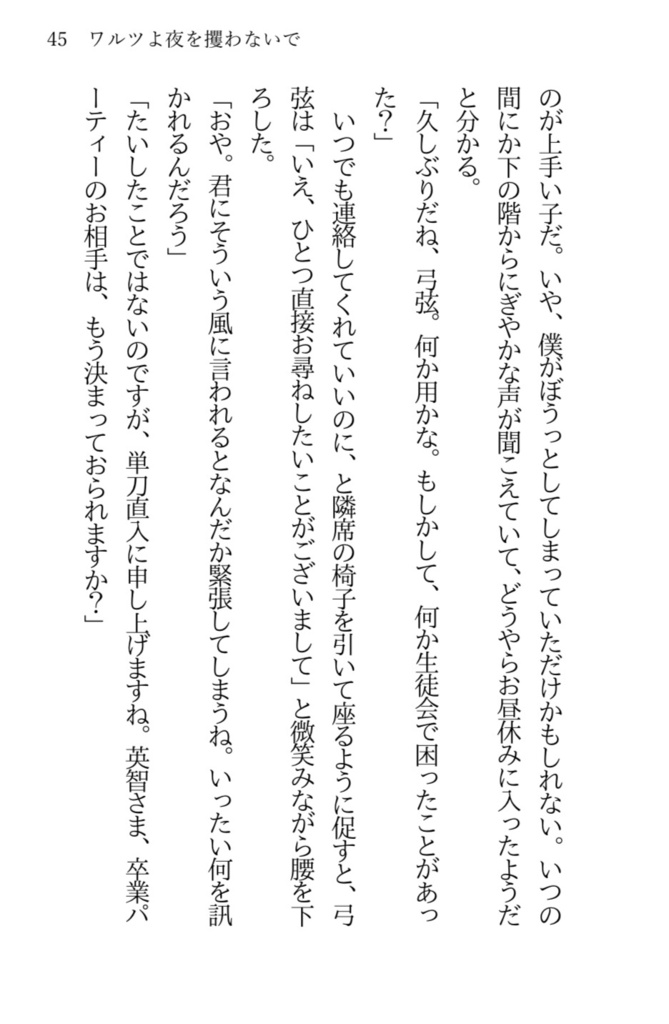 45 ワルツよ夜を攫わないで
のが上手い子だ。いや、僕がぼうっとしてしまっていただけかもしれない。いつの
間にか下の階からにぎやかな声が聞こえていて、どうやらお昼休みに入ったようだ
と分かる。
「久しぶりだね、弓弦。何か用かな。もしかして、何か生徒会で困ったことがあっ
た？」
いつでも連絡してくれていいのに、と隣席の椅子を引いて座るように促すと、弓
弦は「いえ、ひとつ直接お尋ねしたいことがございまして」と微笑みながら腰を下
ろした。
「おや。君にそういう風に言われるとなんだか緊張してしまうね。いったい何を訊
かれるんだろう」
「たいしたことではないのですが、単刀直入に申し上げますね。英智さま、卒業パ
ーティーのお相手は、もう決まっておられますか？」